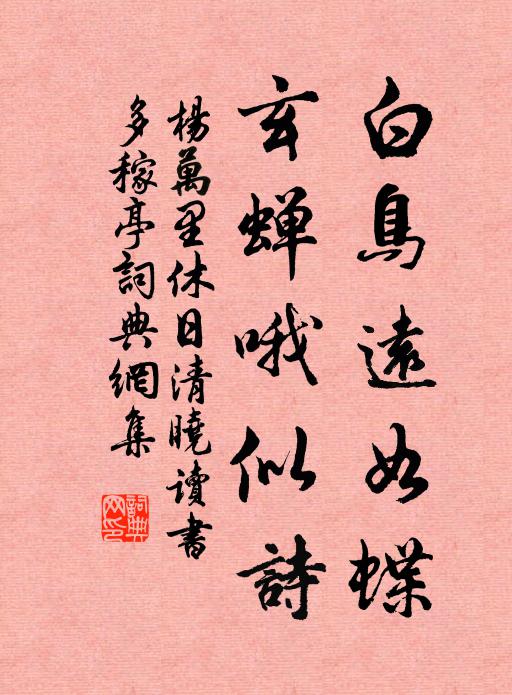 白鳥遠如蝶
玄蝉哦似詩
楊萬里休日清曉读書
多稼亭詞典網集
詞典
网印